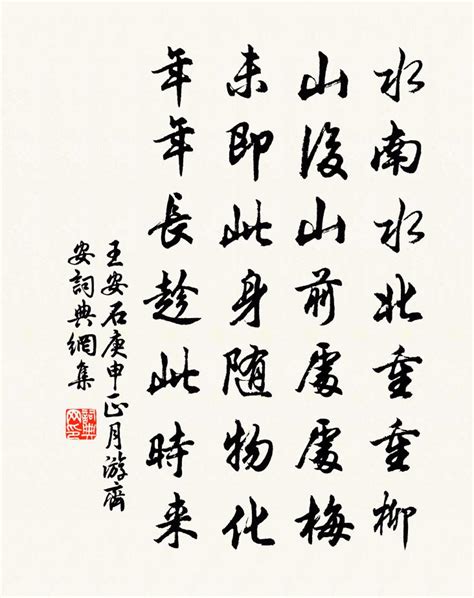 水南水北重重柳
山後山前處處梅
未即此身隨物化
年年長趁此時來
王安石庚申正月游齊
安詞典網集